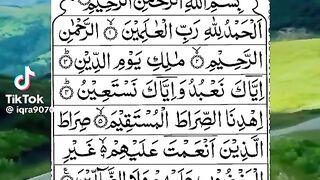 بِسْمِ اللهِ الرَّحْمٰنِ الرَّحِيْمِ
اَلْحَمْدُ لِلّٰهِ رَبِّ الْعٰلَمِيْنَ ۝۱ الرَّحْمٰنِ
الرَّحِيْمِ ۝۲ مٰلِكِ يَوْمِ الدِّيْنِ ۝۳
اِيَّاكَ نَعْبُدُ وَاِيَّاكَ نَسْتَعِيْنُ ۝۴
اِهْدِنَا الصِّرَاطَ الْمُسْتَقِيْمَ ۝۵ صِرَاطَ
الَّذِيْنَ اَنْعَمْتَ عَلَيْهِمْ ۝۶ غَيْرِ
الْمَغْضُوْبِ عَلَيْهِمْ وَلَا الضَّآلِّيْنَ
TikTok
@ iqra9070